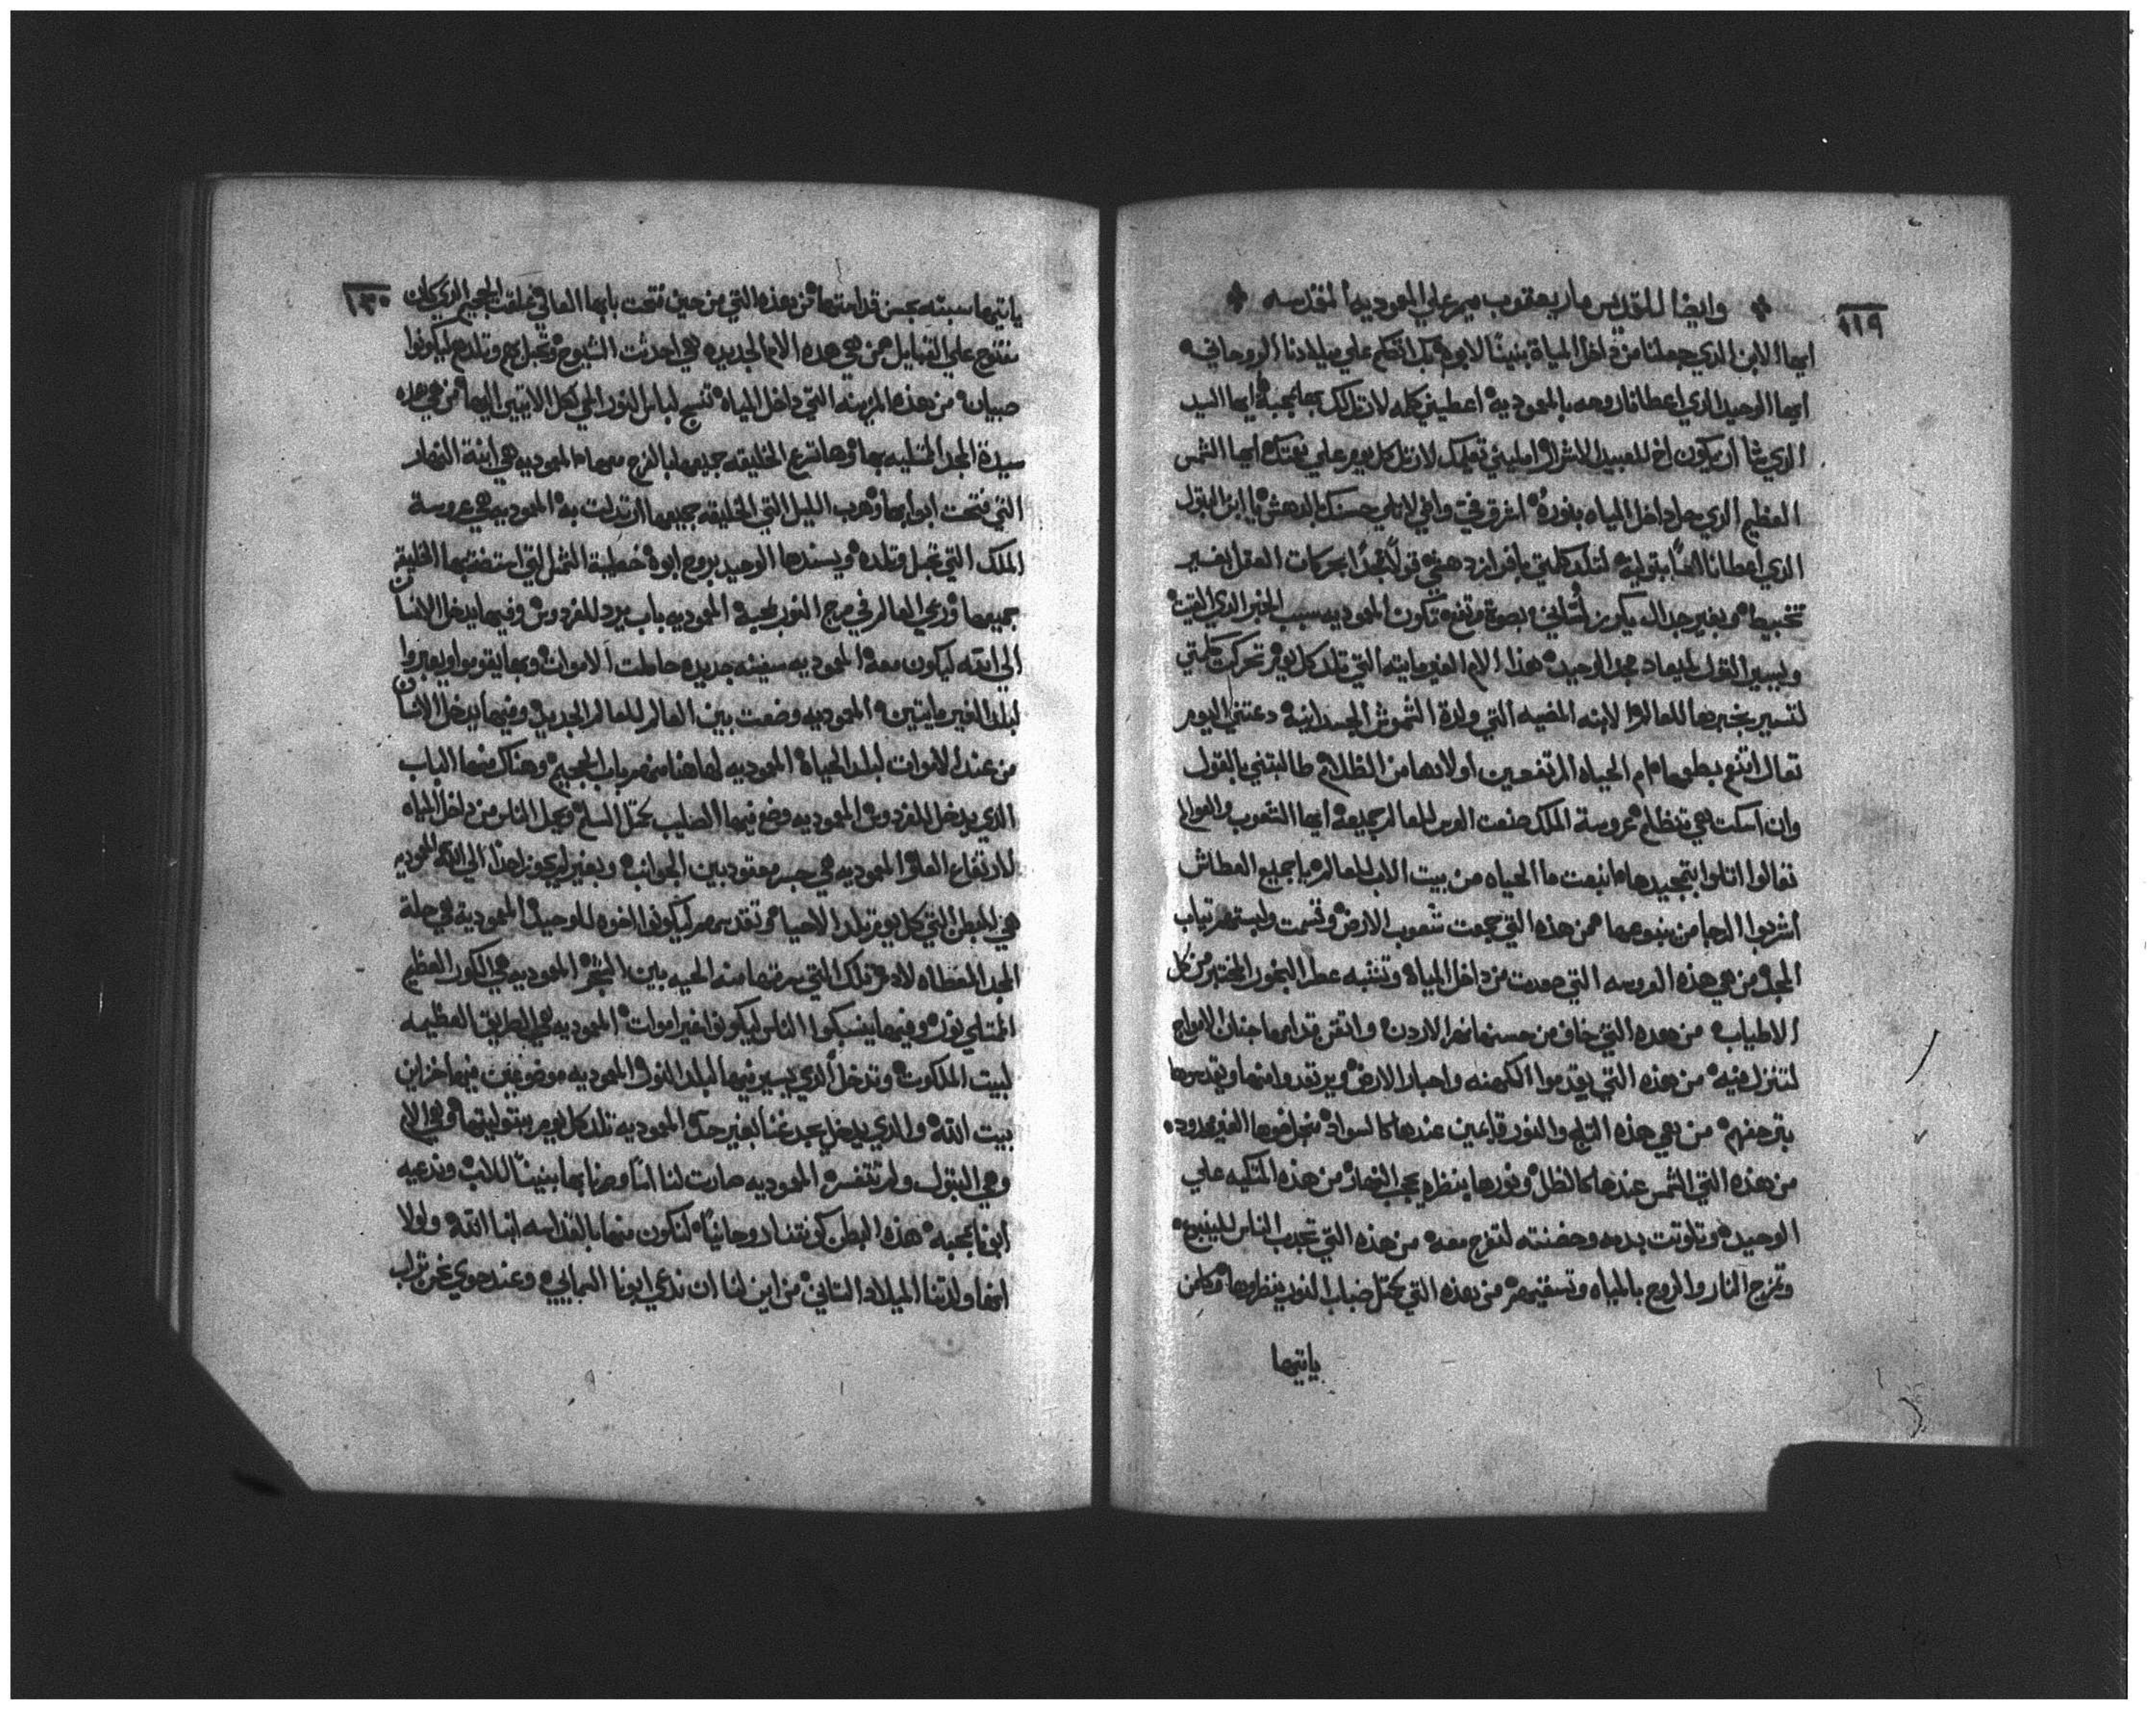 ١١٩
وايضا للقديس مار يعقوب ميمر علي المعوديه المقدسه
ايها الابن الذي جعلنا من داخل المياة بنينًا لابوه بك اتكلم علي ميلادنا الروحاني
ايها الوحيد الذي اعطانا روحه بالمعموديه اعطيني كلمه لارتل لك بها بمحبة ايها السيد
الذي شا ان يكون اخ للعبيد الاشرار امليني تعليمك لارتل كل يوم علي نعمتك ايها الشمس
العظيم الذي حل داخل المياه بنوره اشرق في وافي لاتلي حسنك بالدهش يا ابن البتول
الذي اعطانا امًا بتوليه لتلد كلمتي يا فراز دهني قولًا مجدًا بحركات العقل بغير
تخبيط وبغير جدال يكون بصوة وتفع تكون المعموديه سبب الخبر الذي
وليسير القول لميعاد مجد الوحيد هذا الام الغير مايته التي تلد كل يوم تحركت كلمتي
لتسير بخبرها للعالم لابنه المضيه التي ولدة الشموش الجسدانيه دعتني اليوم
تعال اتنعم بطعمها ام الحياه المرتفعين اولادها من الظلام طالبتني بالقول
وان اسكت هي تتظلم عروسة الملك صنعت العرس للعالم جميعه ايها الشعوب والعوالم
تعالوا اتلوا بتمجيدها انبعت ما الحياه من بيت الاب للعالم يا جميع العطاش
اشربوا الرجا من ينبوعها من هذه التي جمعت شعوب الارض وقسمت ولبستهم تياب
المجد من هي هذه العروسه التي صعدت من داخل المياه وتشبه عطر البخور المختبر من كل
الاطياب من هذه التي خاف من حسنها نهر الاردن واتقن قدامها جنان الامواج
لتنزل فيه من هذه التي يقدموا الكهنه واحبار الارض ويرتعدوا منها ويقدسوها
بترجفهم من هي هذه التلج والنور قايمين عندها كالسواد منجل ضوها الغير محدود
من هذه التي الشمس عندها كالظل ونورها ينظره يجب النهار من هذه المتكيه علي
الوحيد وتلوتت بدمه وحضنته لتفرح معه من هذه التي تجدب الناس للينبوع
وتمزج النار والروح بالمياه وتسقيهم من هذه التي تحتل ضباب النور ينظرها وكلمن
ياتيها
١٢٠
ياتيها سبته بحسن قداستها من هذه التي من حين فتحت بابها العالي غلقت الجحيم الذي كان
مفتوح علي القبايل من هي هذه الام الجديده هي احدثت الشيوخ وتحبل بهم وتلدهم ليكونوا
صبيان من هذه المزينه التي داخل المياه تنسج لباس النور الي كل الاتيين اليها من هي هذه
سيدة المجد المتليه بها وها تسرع الخليقه جميعها بالفرح معها المعموديه هي ابنة النهار
التي فتحت ابوابها وهرب الليل التي الخليقه جميعها ارتدلت به المعموديه هي عروسة
الملك التي تحبل وتلده ويسندها الوحيد بروح ابوه خطيبة الشمل التي استضت بها الخليقه
جميعها ورعي العالم في مرج النور بمحبه المعموديه باب يرد للفردوس وفيها يدخل الانسان
الي الله ليكون معه المعموديه سفينه جديده حاملت الاموات وبها يقوموا ويعبروا
لبلد الغير مايتين المعموديه وضعت بين العالم للعالم الجديد وفيها يدخل الانسان
من عند الاموات لبلد الحياة المعموديه لها هنا من باب الجحيم وهناك منها الباب
الذي يدخل للفردوس المعموديه وضع فيها الصليب كمتل السلم ويحمل الناس من داخل المياه
للارتفاع العالي المعموديه هي جسر معقود بين الجوانب وبغيره لم يجوز احدًا الي الله المعموديه
هي البطن التي كل يوم تلد الاحيا وتقدسهم ليكونوا اخوه للوحيد المعموديه هي حلة
المجد المعطاه لادم تلك التي سرقتها منه الحيه بين الشجر المعموديه هي الكور العظيم
الممتلي نور وفيها ينسبكوا الناس ليكونوا غير اموات المعموديه هي الطريق العظيمه
لبيت الملكوت وتدخل الذي يسير فيها لبلد النور المعموديه موضوعين فيها خزاين
بيت الله والذي يدخل يجد غنا بغير حد المعموديه تلد كل يوم بتوليتها هي الام
وهي البتول ولم تنفسد المعموديه صارت لنا امًا وصرنا بها بنينًا للاب وندعيه
ابونا بمحبه هذه البطن كونتنا روحانيًا لنكون منها بالقداسه ابنا الله ولولا
انها ولدتنا الميلاد التاني من اين لنا ان ندعي ابونا السمايي وعند حوي نحن تراب